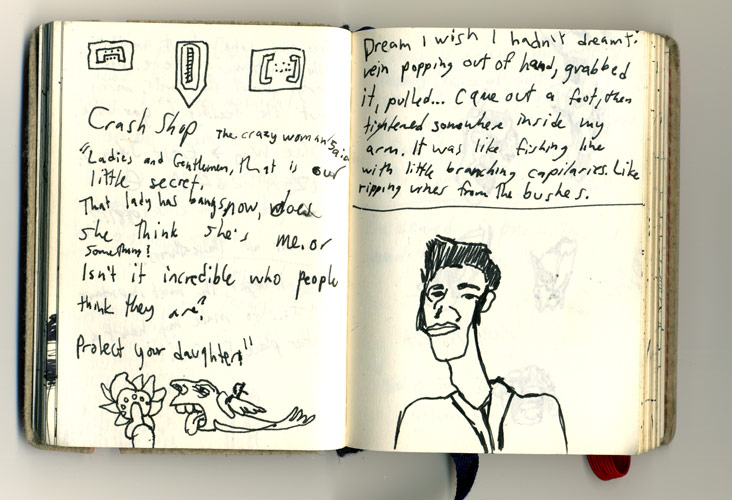 Crash Shop The crazy woman said
"Ladies and Gentlemen, that is our
little secret.
That lady has bangs now, does
she think she's me. or
something?
Isn't it incredible who people
think they are?
Protect your daughters!"
Dream I wish I hadn't dreamt.
vein popping out of hand, grabbed
it, pulled... Came out a foot, then
tightened somewhere inside my
arm. It was like fishing line
with little branching capilaries. Like
ripping vines from the bushes.